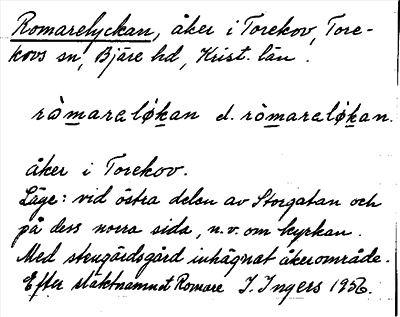 Romarelyckan, åker i Torekov, Tore-
kovs sn, Bjäre hd, Krist. län.
ròmareløkan el. ròmaraløkan.
åker i Torekov.
Läge: vid östra delen av Storgatan och
på dess norra sida, n.v. om kyrkan.
Med stengärdsgård inhägnat åkerområde.
Efter släktnamnet Romare I. Ingers 1956.